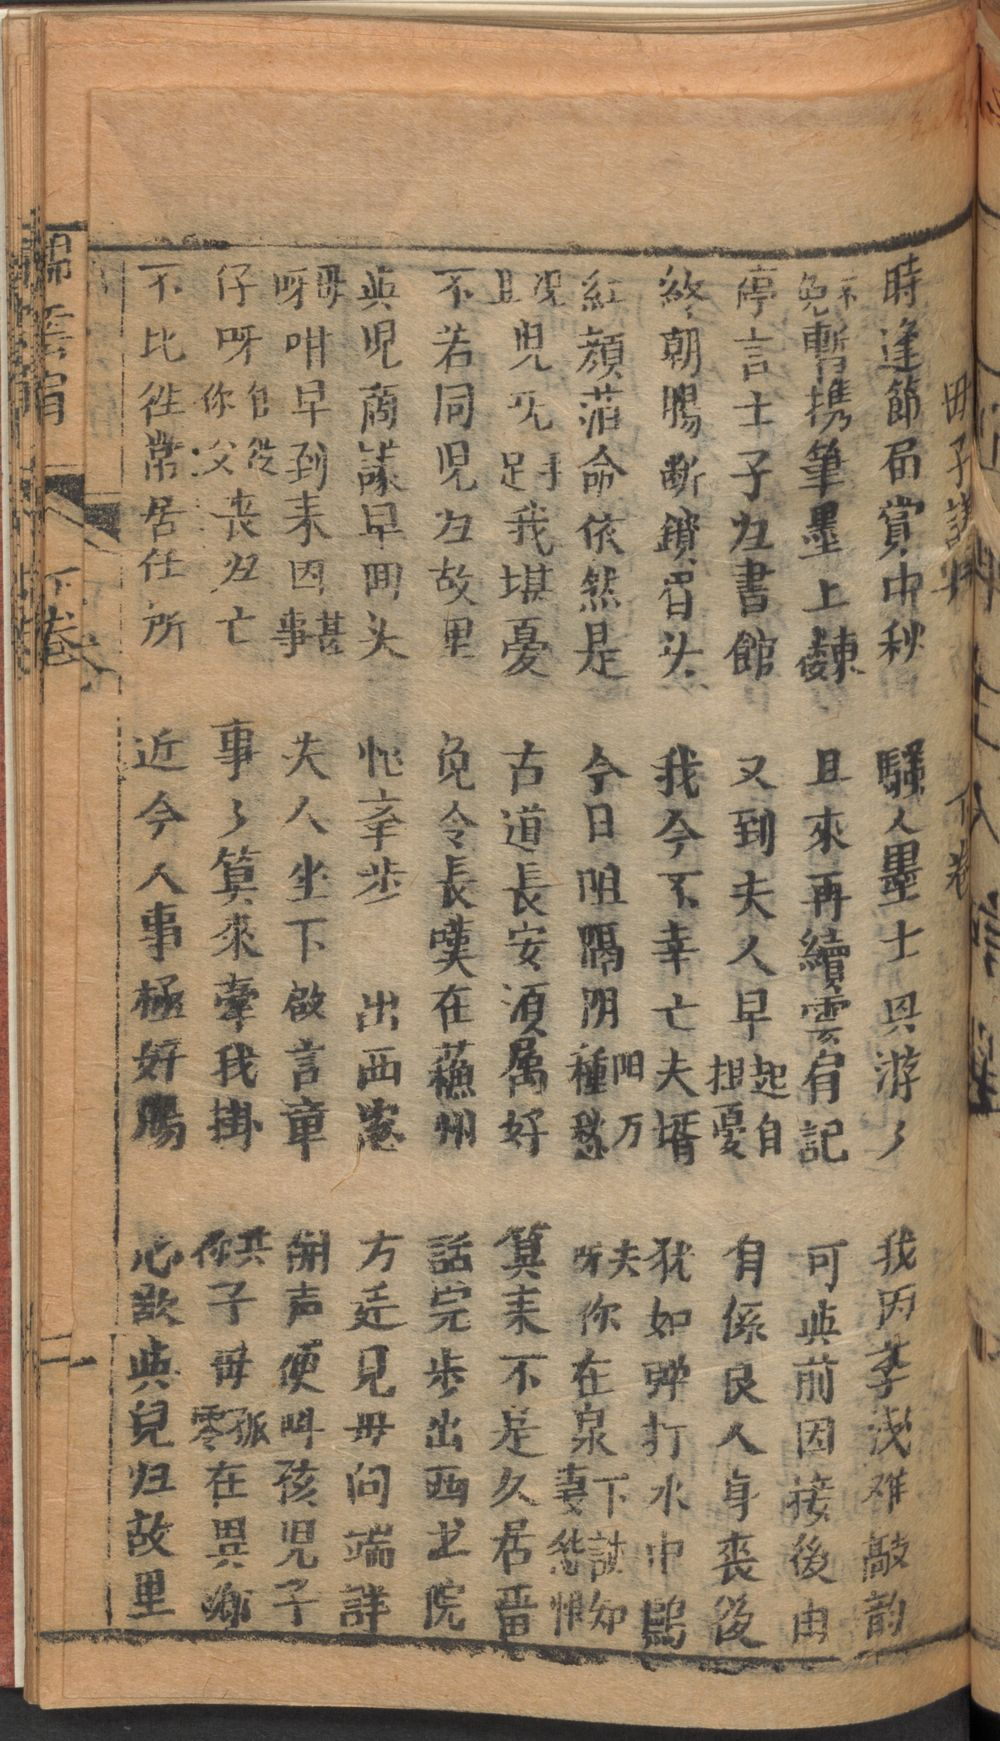 母子議歸　下卷
時逢節屆賞中秋　騷人墨士共游々　我因李浅难敲韵
不免暫携筆墨上樓東　且來再續雲肩記　可共前因接後由
停言士子归書館　又到夫人早起自担憂　自係良人身丧後
終朝腸断鎖眉头　我今不幸亡夫壻　犹如弹打水中鷗
紅顔薄命依然是　今日阻隔阴阳万種愁　夫呀你在泉下詎知妻愁惟
况且兒兄手足我堪憂　古道長安須属好　算来不是久居畱
不若同児归故里　免令長嘆在蘓州　話完步出西书院
共児商議早回头　忙牵步　出西窓　方廷見毋问端詳
毋呀咁早到来因甚事　夫人坐下啟言章　開声便叫孩児子
仔呀自從你父丧归亡　事々算來牽我掛　共你子毋孤零在異鄉
不比徃常居任所　近今人事極好腸　心欲共兒归故里
錦雲肩　下卷　二